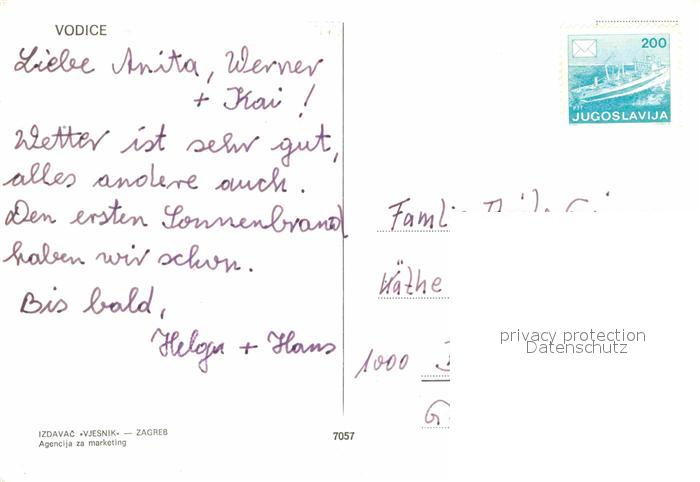 VODICE
Liebe Anita, Werner
+ Kai !
Wetter ist sehr gut,
alles andere auch.
Den ersten Sonnenbrand
haben wir schon.
Bis bald,
Helga + Hans
IZDAVAČ «VJESNIK» — ZAGREB
Agencija za marketing
7057
200
JUGOSLAVIJA
Famli
Käthe
1000
privacy protection
Datenschutz